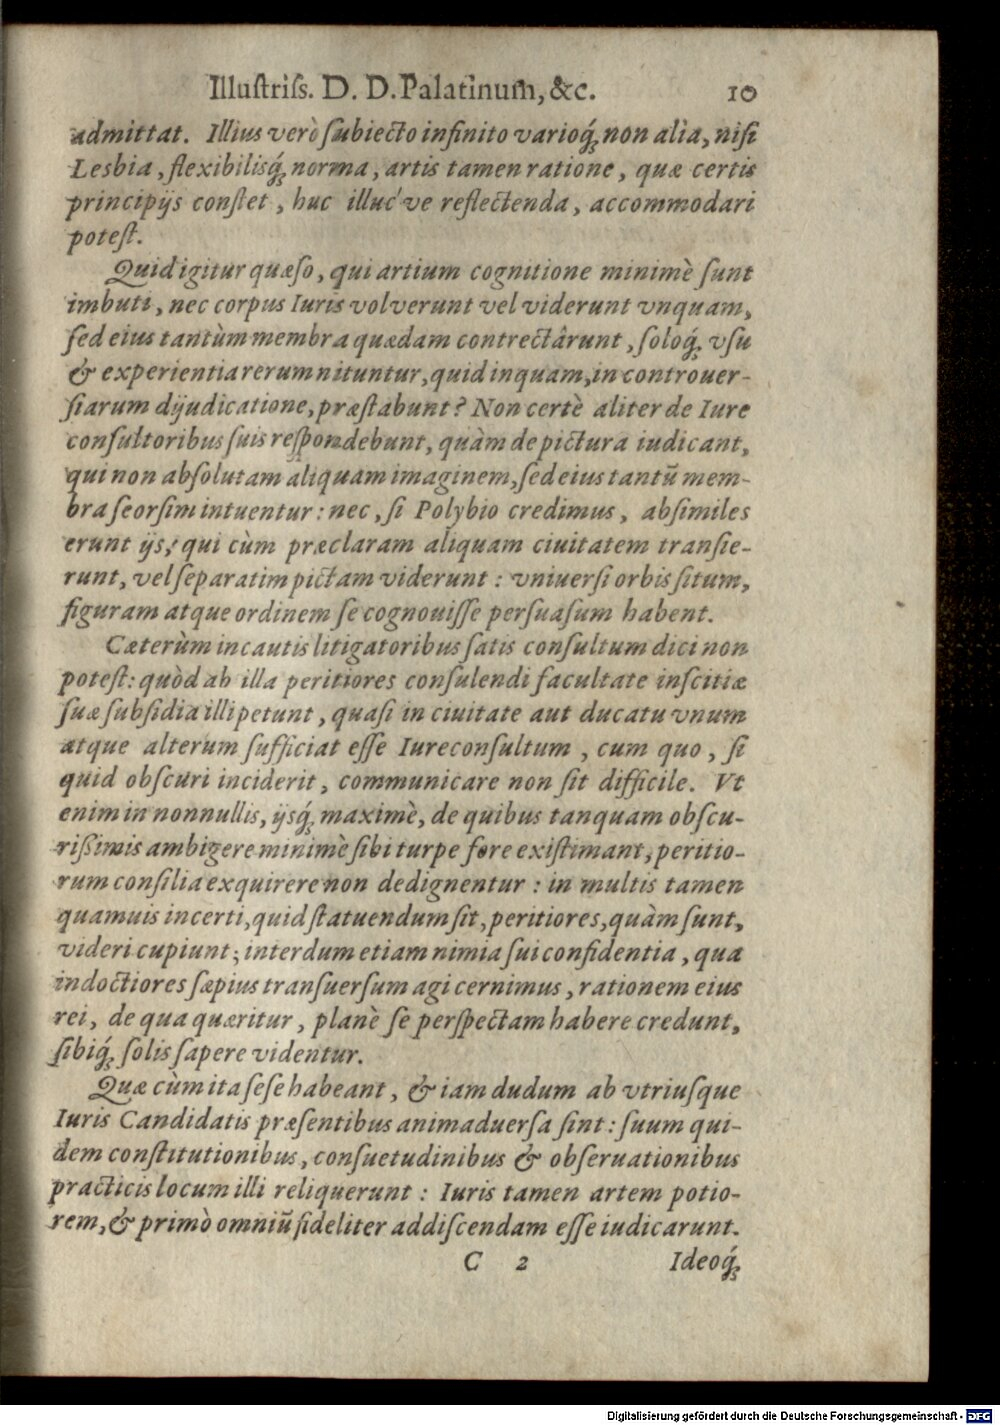 Illustriſs. D. D. Palatinum, &c. 10
admittat. Illius verò ſubiecto infinito varioq́ꝫ non alia, niſi
Lesbia, flexibilisq́ꝫ norma, artis tamen ratione, quæ certis
principijs conſtet, huc illuc've reflectenda, accommodari
poteſt.
Quid igitur quæſo, qui artium cognitione minimè ſunt
imbuti, nec corpus Iuris volverunt vel viderunt vnquam,
ſed eius tantùm membra quædam contrectârunt, ſoloq́ꝫ vſu
& experientia rerum nituntur, quid inquam, in controuer-
ſiarum dijudicatione, præſtabunt? Non certè aliter de Iure
conſultoribus ſuis reſpondebunt, quàm de pictura iudicant,
qui non abſolutam aliquam imaginem, ſed eius tantũ mem-
bra ſeorſim intuentur: nec, ſi Polybio credimus, abſimiles
erunt ijs, qui cùm præclaram aliquam ciuitatem tranſie-
runt, vel ſeparatim pictam viderunt: vniuerſi orbis ſitum,
figuram atque ordinem ſe cognouiſſe perſuaſum habent.
Cæterùm incautis litigatoribus ſatis conſultum dici non
poteſt: quòd ab illa peritiores conſulendi facultate inſcitiæ
ſuæ ſubſidia illi petunt, quaſi in ciuitate aut ducatu vnum
atque alterum ſufficiat eſſe Iureconſultum, cum quo, ſi
quid obſcuri inciderit, communicare non ſit difficile. Vt
enim in nonnullis, ijsq́ꝫ maximè, de quibus tanquam obſcu-
rißimis ambigere minimè ſibi turpe fore exiſtimant, peritio-
rum conſilia exquirere non dedignentur: in multis tamen
quamuis incerti, quid ſtatuendum ſit, peritiores, quàm ſunt,
videri cupiunt; interdum etiam nimia ſui confidentia, qua
indoctiores ſæpius tranſuerſum agi cernimus, rationem eius
rei, de qua quæritur, planè ſe perſpectam habere credunt,
ſibiq́ꝫ ſolis ſapere videntur.
Quæ cùm ita ſeſe habeant, & iam dudum ab vtriuſque
Iuris Candidatis præſentibus animaduerſa ſint: ſuum qui-
dem conſtitutionibus, conſuetudinibus & obſeruationibus
practicis locum illi reliquerunt: Iuris tamen artem potio-
rem, & primò omniũ fideliter addiſcendam eſſe iudicarunt.
C 2 Ideoq́ꝫ
Digitalisierung gefördert durch die Deutsche Forschungsgemeinschaft - DFG